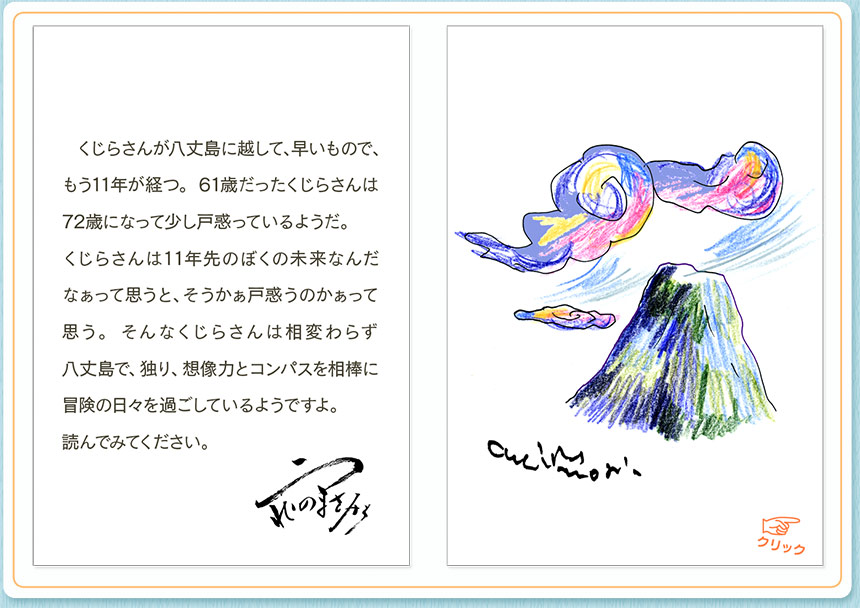 くじらさんが八丈島に越して、早いもので、
もう11年が経つ。61歳だったくじらさんは
72歳になって少し戸惑っているようだ。
くじらさんは11年先のぼくの未来なんだ
なぁって思うと、そうかぁ戸惑うのかぁって
思う。そんなくじらさんは相変わらず
八丈島で、独り、想像力とコンパスを相棒に
冒険の日々を過ごしているようですよ。
読んでみてください。
クリック